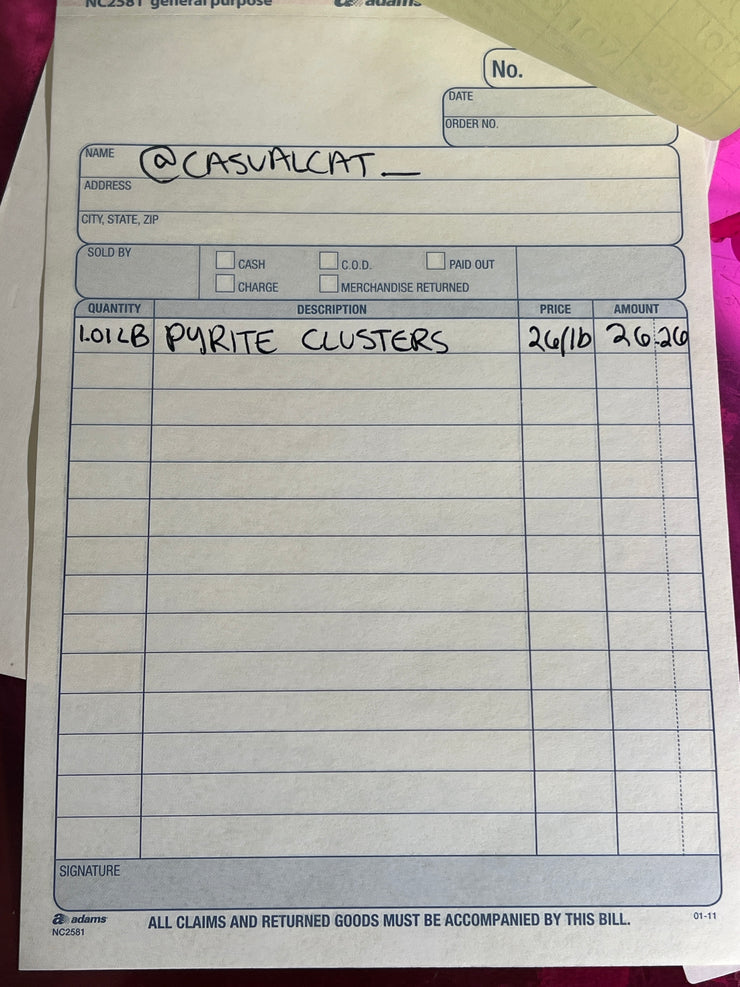 NC2581 general purpose adams
No.
DATE
ORDER NO.
NAME @CASUALCAT_
ADDRESS
CITY, STATE, ZIP
SOLD BY
CASH C.O.D. PAID OUT
CHARGE MERCHANDISE RETURNED
QUANTITY DESCRIPTION PRICE AMOUNT
1.01LB PYRITE CLUSTERS 26/lb 26.26
SIGNATURE
adams
NC2581
ALL CLAIMS AND RETURNED GOODS MUST BE ACCOMPANIED BY THIS BILL.
01-11